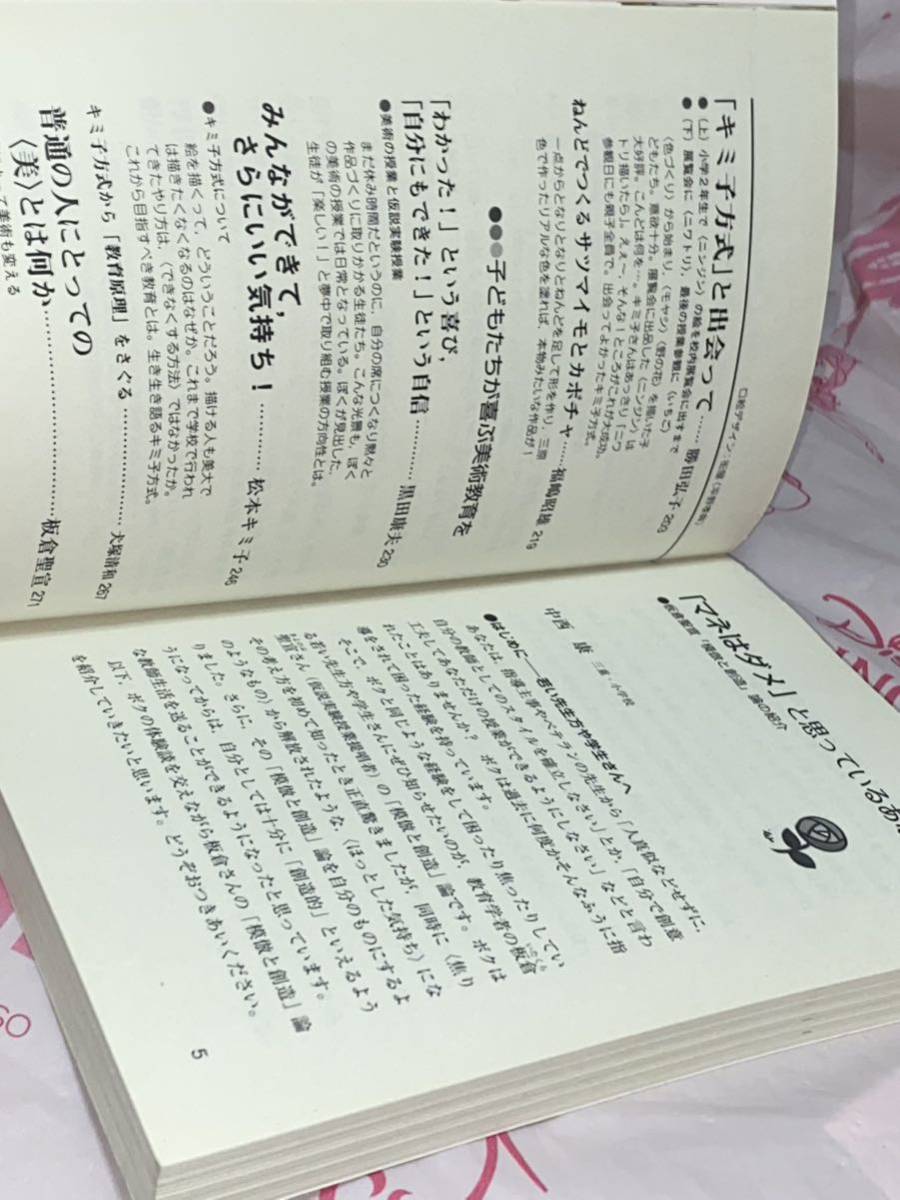 口絵デザイン・街屋(平野孝典)
「キミ子方式」と出会って……勝田弘子 203
●(上)小学2年生で〈ニンジン〉の絵を校内展覧会に出すまで
●(下)展覧会に〈ニワトリ〉,最後の授業参観に〈いちご〉
〈色づくり〉から始まり,〈モヤシ〉〈野の花〉を描いた子
どもたち。意欲十分。展覧会に出品した〈ニンジン〉は
大好評。こんどは何を…。キミ子さんはあっさり「ニワ
トリ描いたら」。えぇ～,そんな!ところがこれが大成功。
参観日にも親子全員で。出会ってよかったキミ子方式。
ねんどでつくるサツマイモとカボチャ……福嶋昭雄 219
一点からとなりとなりとねんどを足して形を作り,三原
色で作ったリアルな色を塗れば,本物みたいな作品が!
●●●子どもたちが喜ぶ美術教育を
「わかった!」という喜び,
「自分にもできた!」という自信…………黒田康夫 230
●美術の授業と仮説実験授業
まだ休み時間だというのに,自分の席につくなり黙々と
作品づくりに取りかかる生徒たち。こんな光景も,ぼく
の美術の授業では日常となっている。ぼくが見出した,
生徒が「楽しい!」と夢中で取り組む授業の方向性とは。
みんながができて,
さらにいい気持ち!…………松本キミ子 246
●キミ子方式について
絵を描くって,どういうことだろう。描ける人も美大で
は描きたくなくなるのはなぜか。これまで学校で行われ
てきたやり方は,〈できなくする方法〉ではなかったか。
これから目指すべき教育とは。生き生き語るキミ子方式。
キミ子方式から「教育原理」をさぐる…………犬塚清和 267
普通の人にとっての
〈美〉とは何か…………板倉聖宣 271
美術も変える
「マネはダメ」と思っているあ
●板倉聖宣「模倣と創造」論の紹介
中西 康 三重・小学校
●はじめに——若い先生方や学生さんへ
あなたは,指導主事やベテランの先生から「人真似などせずに,
自分の教師としてのスタイルを確立しなさい」とか,「自分で創意
工夫してあなただけの授業ができるようにしなさい」などと言わ
れたことはありませんか? ボクは過去に何度かそんなふうに指
導をされて困った経験を持っています。
そこで,ボクと同じような経験をして困ったり焦ったりしてい
る若い先生方や学生さんにぜひ知らせたいのが,教育学者の板倉
聖宣さん(仮説実験授業提唱者)の「模倣と創造」論です。ボクは
その考え方を初めて知ったとき正直驚きましたが,同時に〈焦り
のようなもの〉から解放されたような,〈ほっとした気持ち〉にな
りました。さらに,その「模倣と創造」論を自分のものにするよ
うになってからは,自分としては十分に「創造的」といえるよう
な教師生活を送ることができるようになったと思っています。
以下,ボクの体験談を交えながら板倉さんの「模倣と創造」論
を紹介していきたいと思います。どうぞおつきあいください。
5